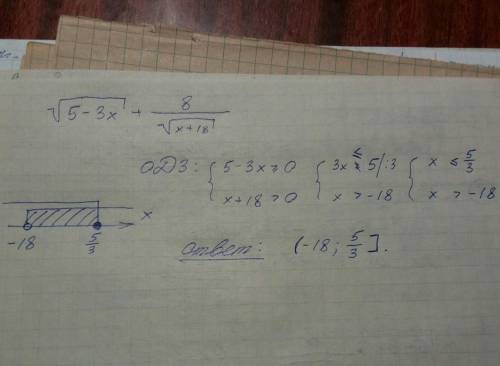 √(5-3x) + 8/√(x+18)
ОДЗ: { 5-3x ≥ 0 { 3x ≤ 5 |:3 { x ≤ 5/3
x+18 > 0 x > -18 x > -18
x
-18 5/3
Ответ: (-18; 5/3].